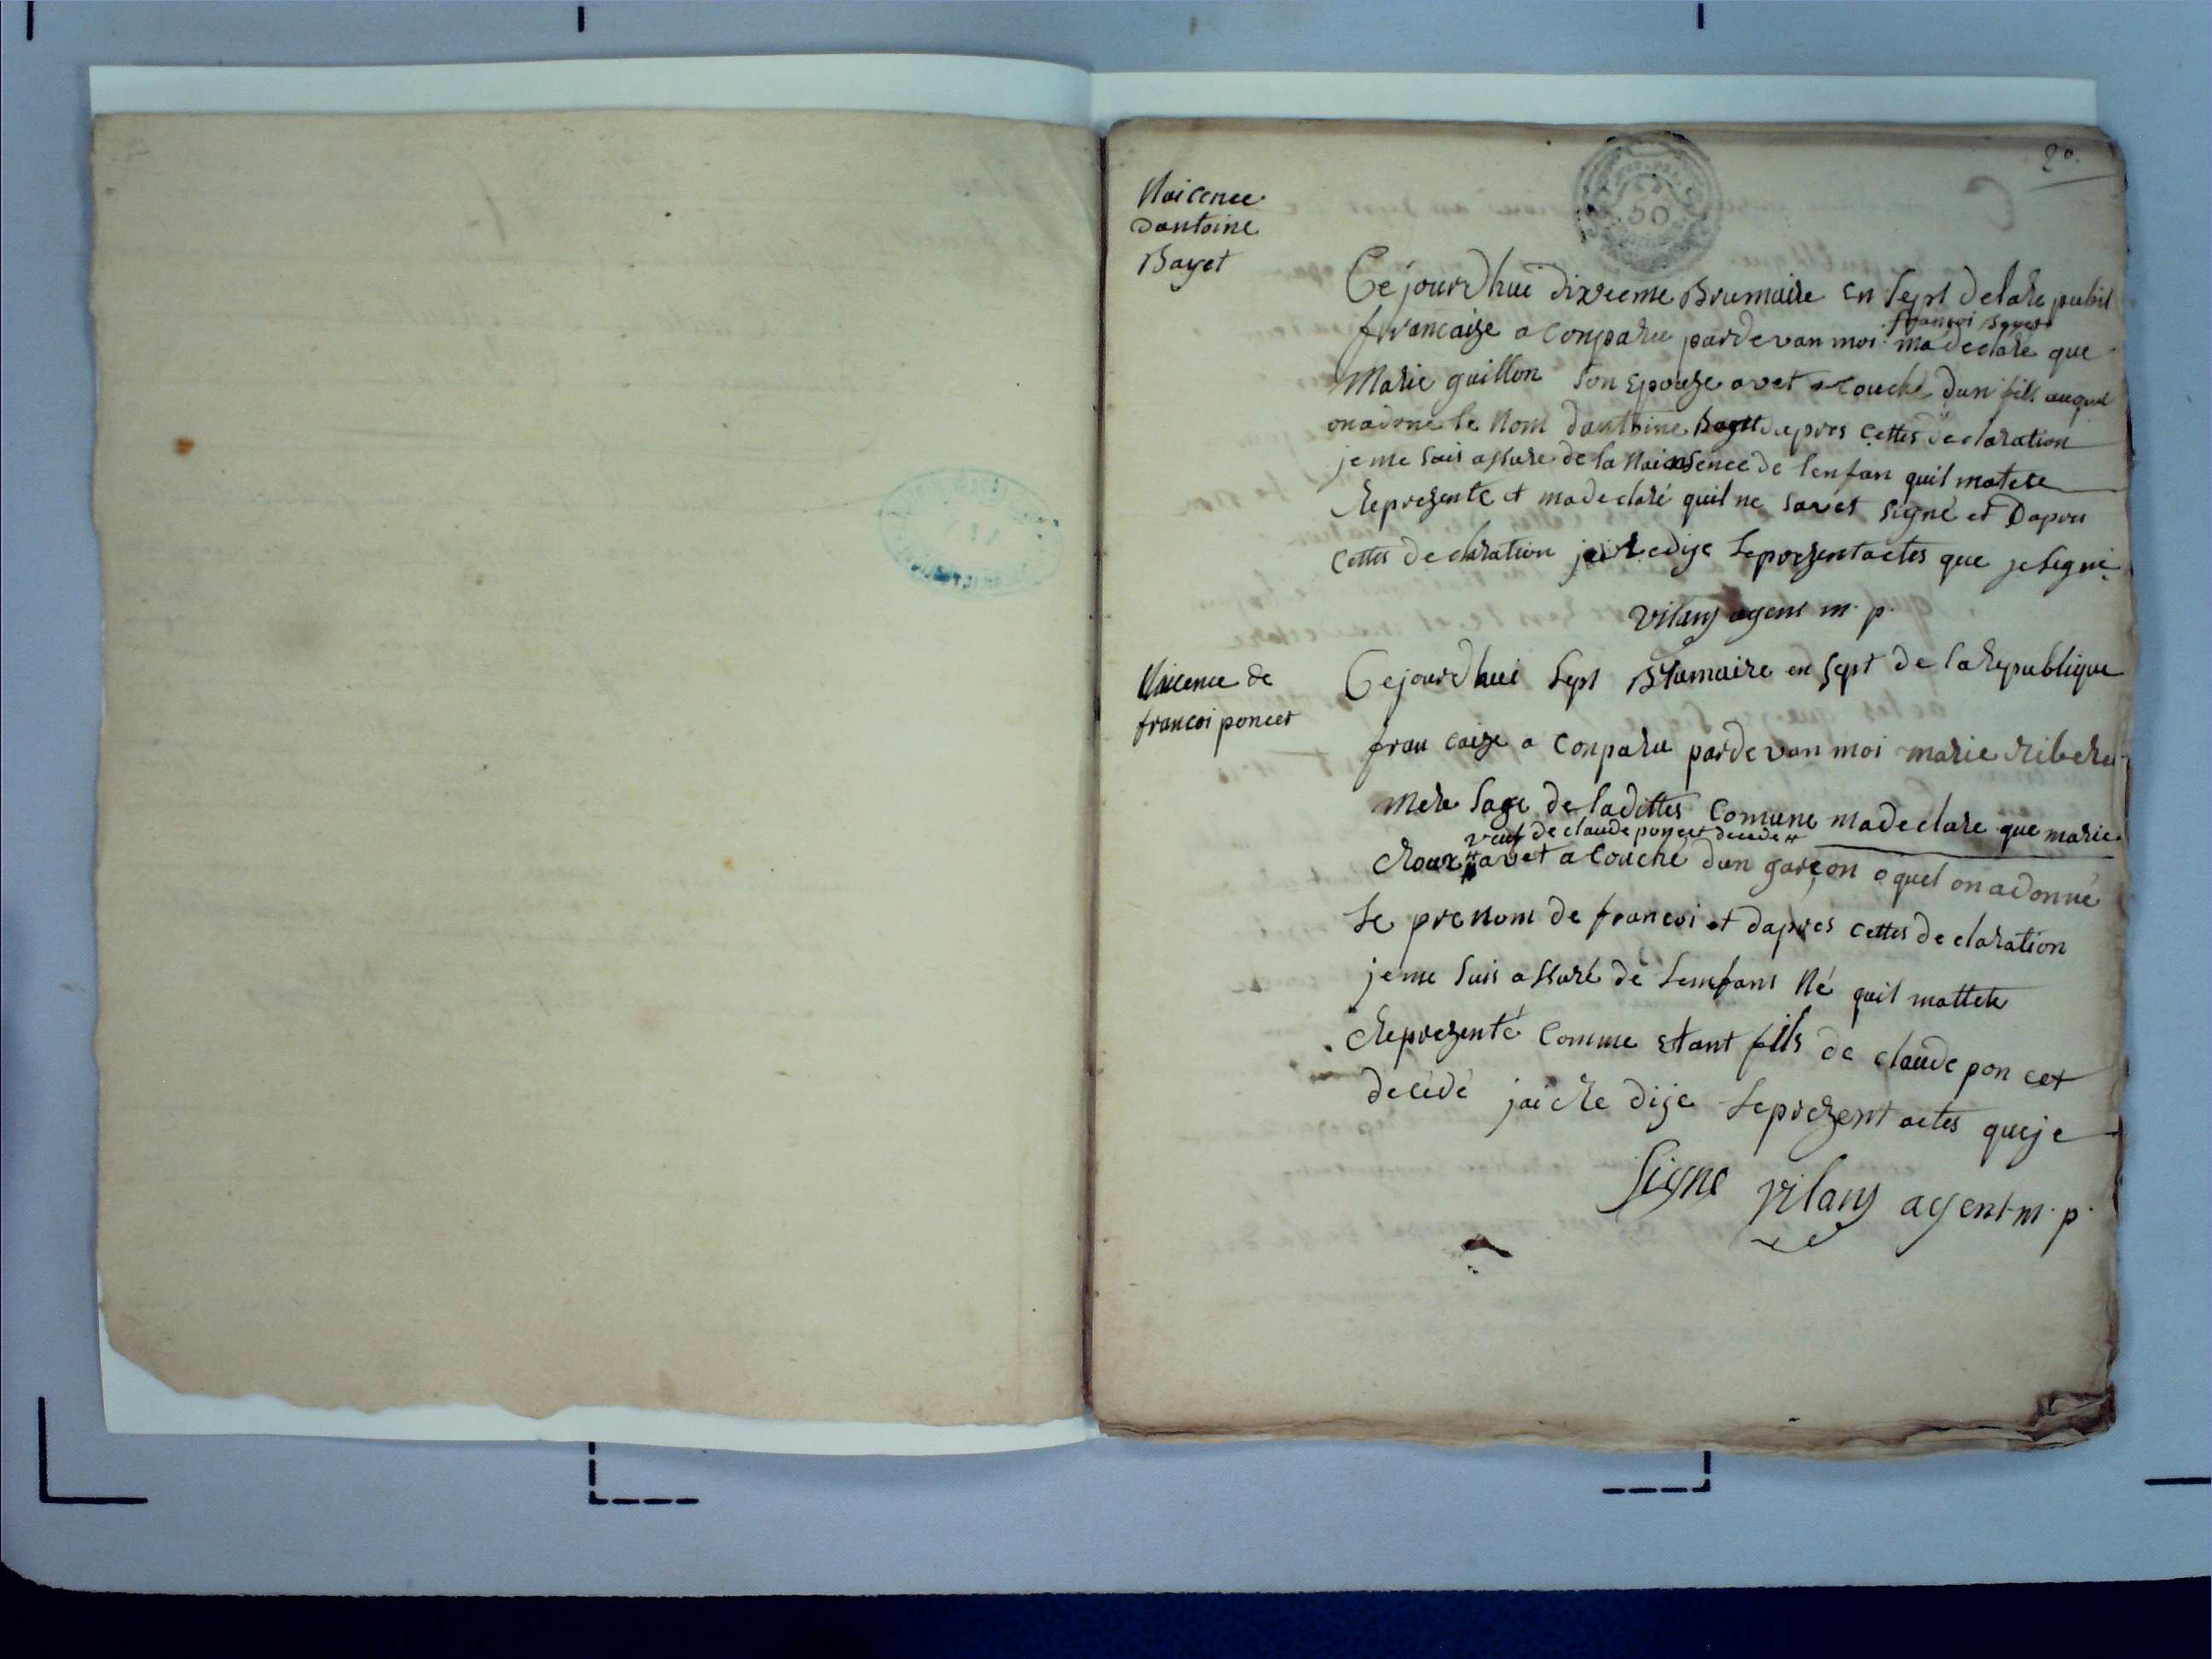 2º.
50
Naicence
Dantoine
Bayet
Céjourdhui dixieme Brumaire en sept delare publi
francaize a conparu pardevan moi françoi Bayet madeclare que
Marie guillon son Epouze avet acouché dun fils auquel
on adoné le Nom dantoine Bayet dapres cettes declaration
jeme suis assure de la Naisence de lenfan quil matete
Reprezente et madeclaré quil ne savét signé et Dapres
cettes declaration jai Redije leprezent actes que je signé
Vilany agent m. p.
Naicence de
francoi poncet
Cejourdhui sept Brumaire en sept de la Republique
francaize a conparu pardevan moi marie Ribere
mere sage de ladittes Comune madeclare que marie
Roux veuf de claude poncet decede avet acouché dun garçon oquel on adonné
le prenom de francoi et dapres cettes declaration
jeme suis assuré de lenfans Né quil mattete
Reprezenté Comme etant fils de claude poncet
decédé jai Redije leprezent actes queje
Signe Vilany agent m. p.